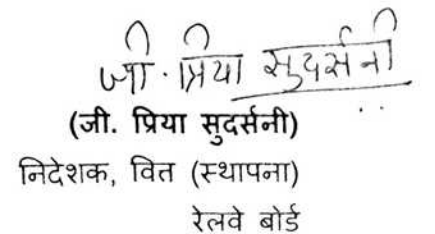 जी. प्रिया सुदर्सनी
(जी. प्रिया सुदर्सनी)
निदेशक, वित (स्थापना)
रेलवे बोर्ड